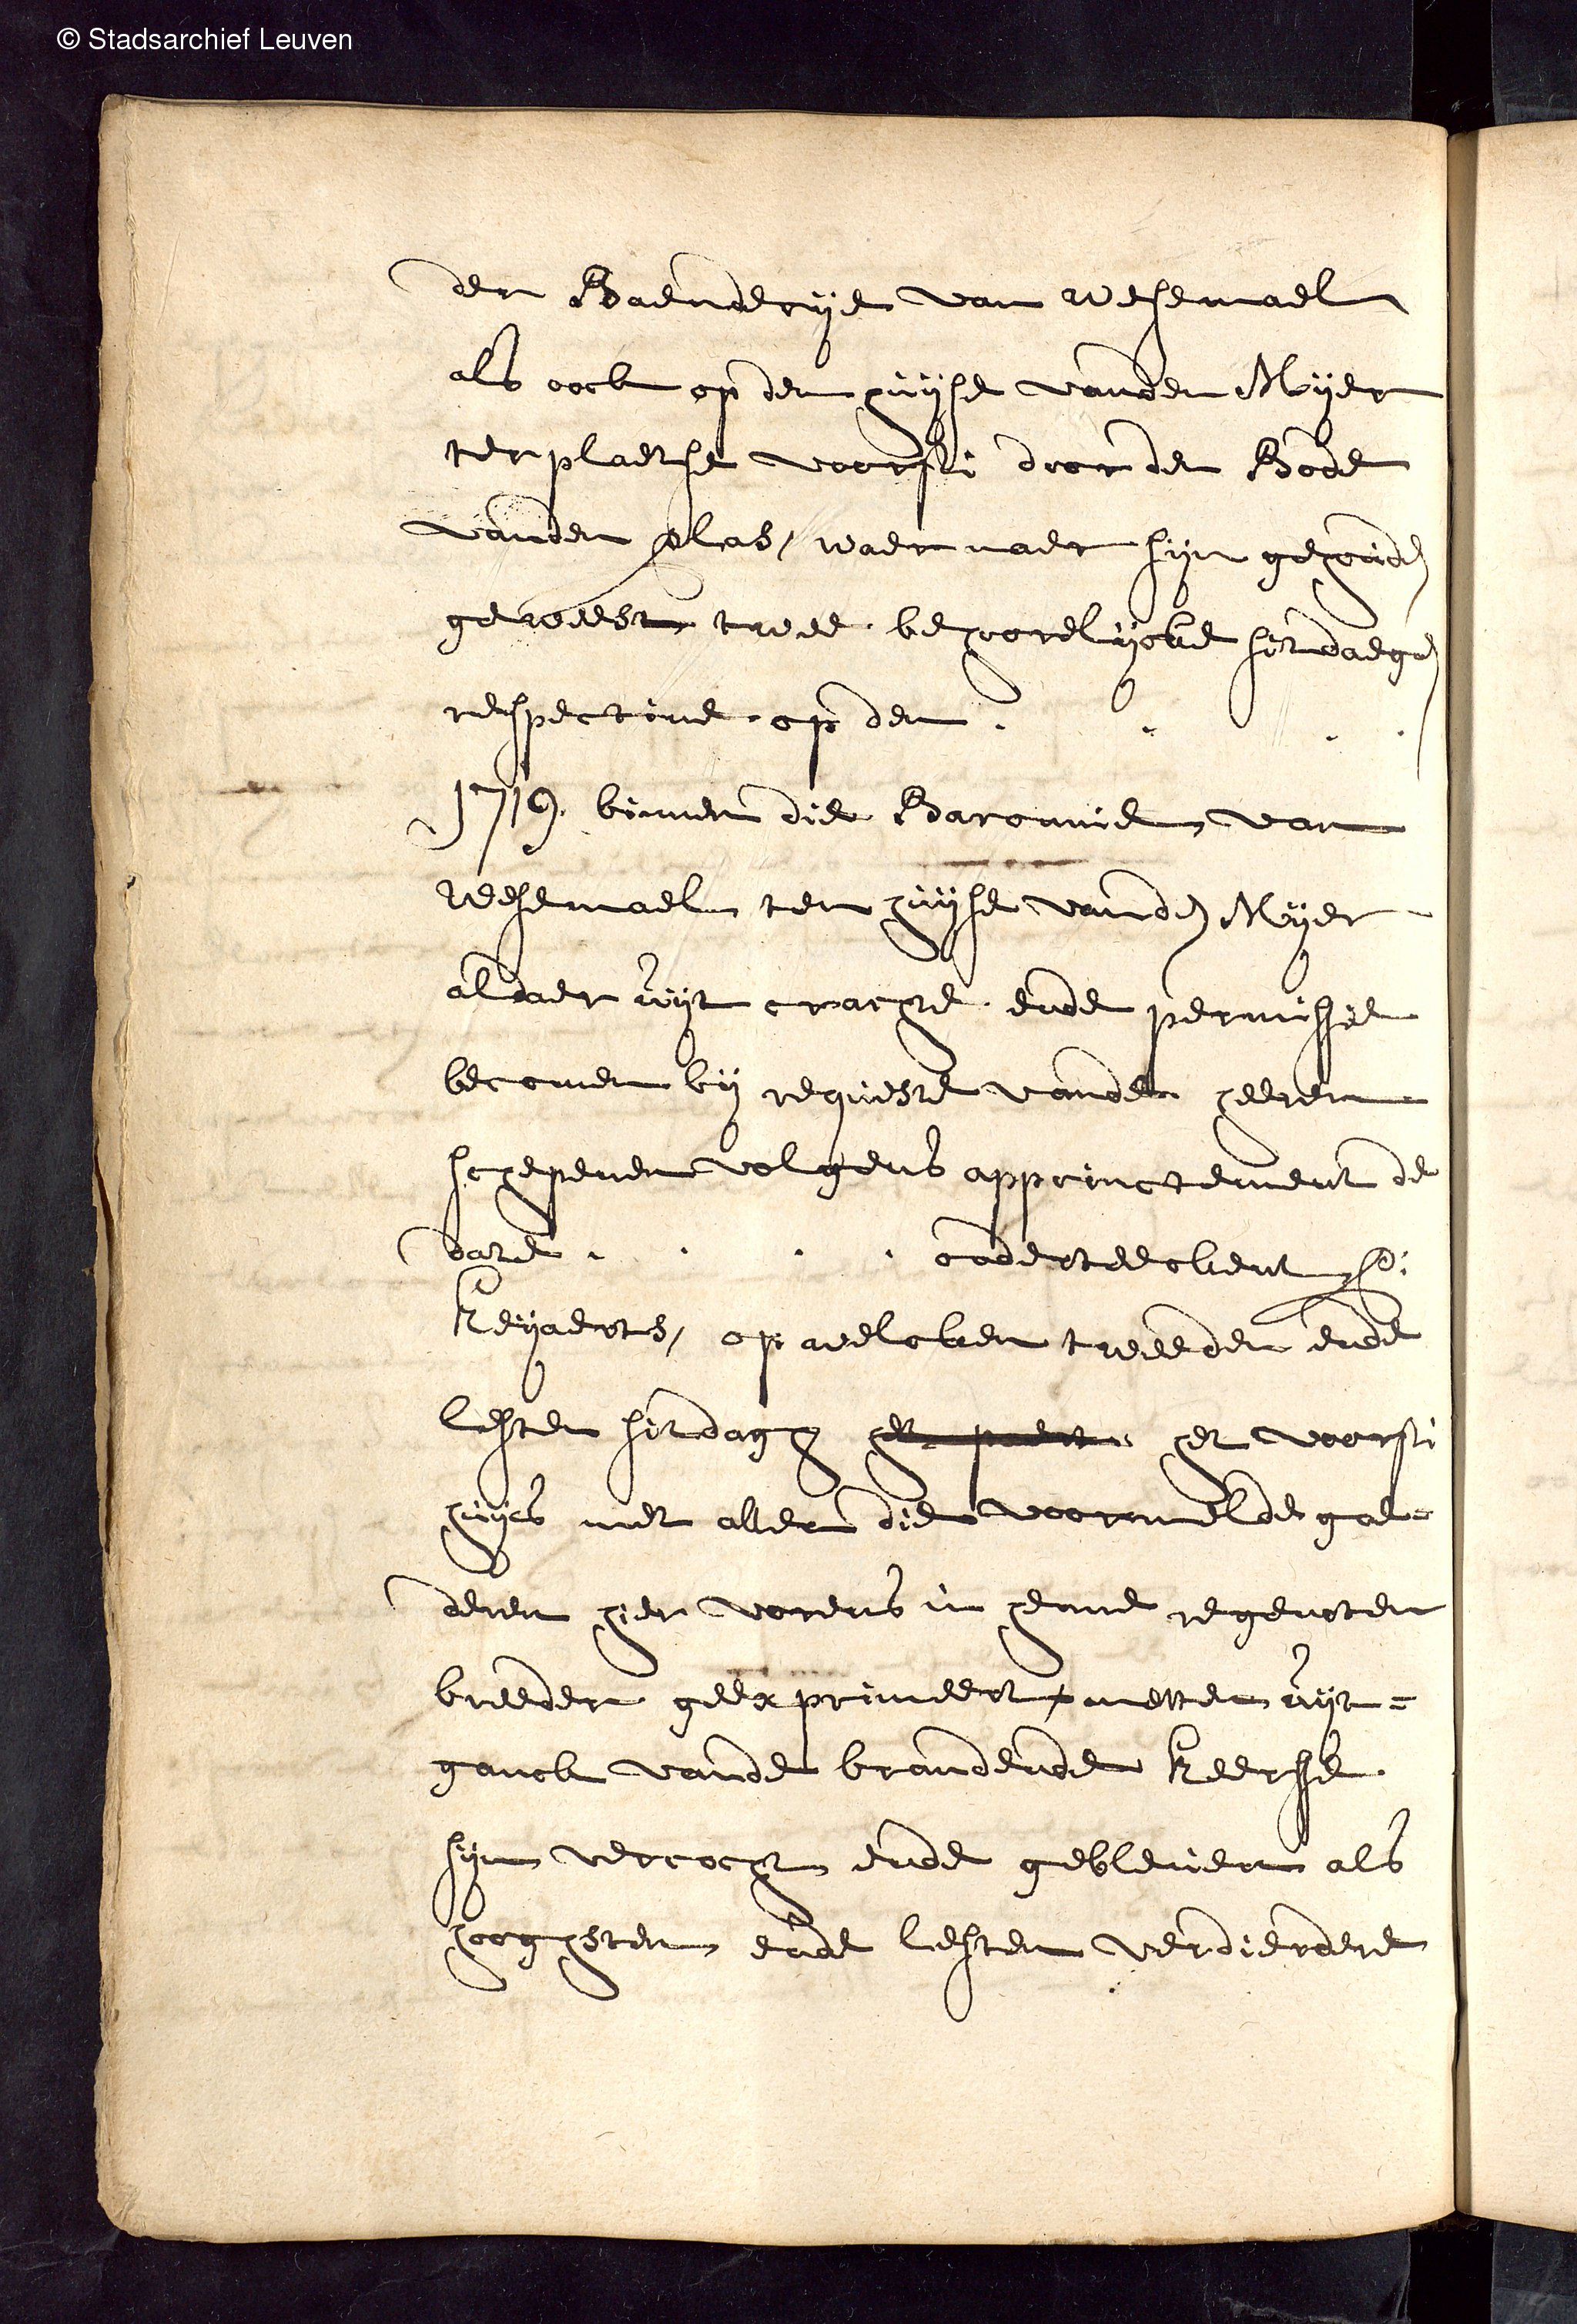 © Stadsarchief Leuven
der Baenderije van Wesemael
als oock op den huijse vanden Meijer
ter plaetse voorsc: door den Bode
vanden plas, waer naer sijn gehouden
geweest twee behoorelijcke sitdaegen
respective op den . . . .
1719 binnen die Baronnie van
Wesemael ten huijse vanden Meijer
aldaer uijt crachte ende permissie
becomen bij requeste vande heeren
schepenen volgens appoinctement de
date . . . . onderteeckent
Keijaerts, op welcken tweeden ende
lesten sitdagh het voorsc:
huijs met allen die voormelde goe=
deren hier vorens in henne regenoten
breeder geexprimeert metten uijt=
ganck vande brandende Keersse
sijn vercocht ende gebleven als
hooghsten ende lesten verdierdere